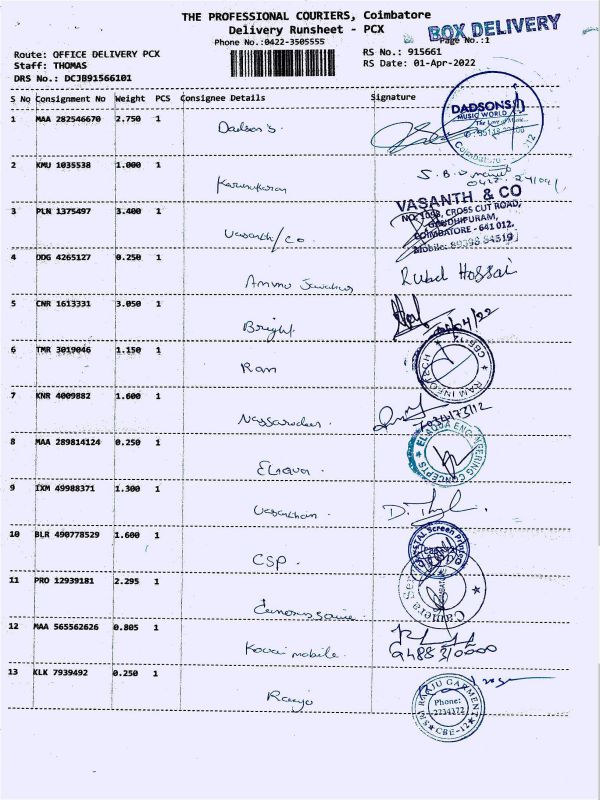 THE PROFESSIONAL COURIERS, Coimbatore
Delivery Runsheet - PCX
BOX DELIVERY
Phone No.:0422-3505555
Page No.:1
Route: OFFICE DELIVERY PCX
RS No.: 915661
Staff: THOMAS
RS Date: 01-Apr-2022
DRS No.: DCJB91566101
S No Consignment No Weight PCS Consignee Details Signature
1 MAA 282546670 2.750 1 Dadson's.
DADSONS
MUSIC WORLD
Coimbatore-12
2 KMU 1035538 1.000 1 Karunakaran
3 PLN 1375497 3.400 1 Vasanth/Co.
VASANTH & CO
NO: 1098, CROSS CUT ROAD,
GANDHIPURAM,
COIMBATORE - 641 012.
4 DDG 4265127 0.250 1 Ammu Rubel Hossai
5 CNR 1613331 3.050 1 Bright
6 TMR 3019046 1.150 1 Ram
RAM INFOTECH
CBE-12
7 KNR 4009882 1.600 1
8 MAA 289814124 0.250 1
ENGINEERING CONCEPTS
9 IXM 49988371 1.300 1
10 BLR 490778529 1.600 1 CSP.
11 PRO 12939181 2.295 1
12 MAA 565562626 0.805 1 Kovai mobile.
13 KLK 7939492 0.250 1 Raaju
SRI RAAJU GARMENT
Phone:
CBE-12